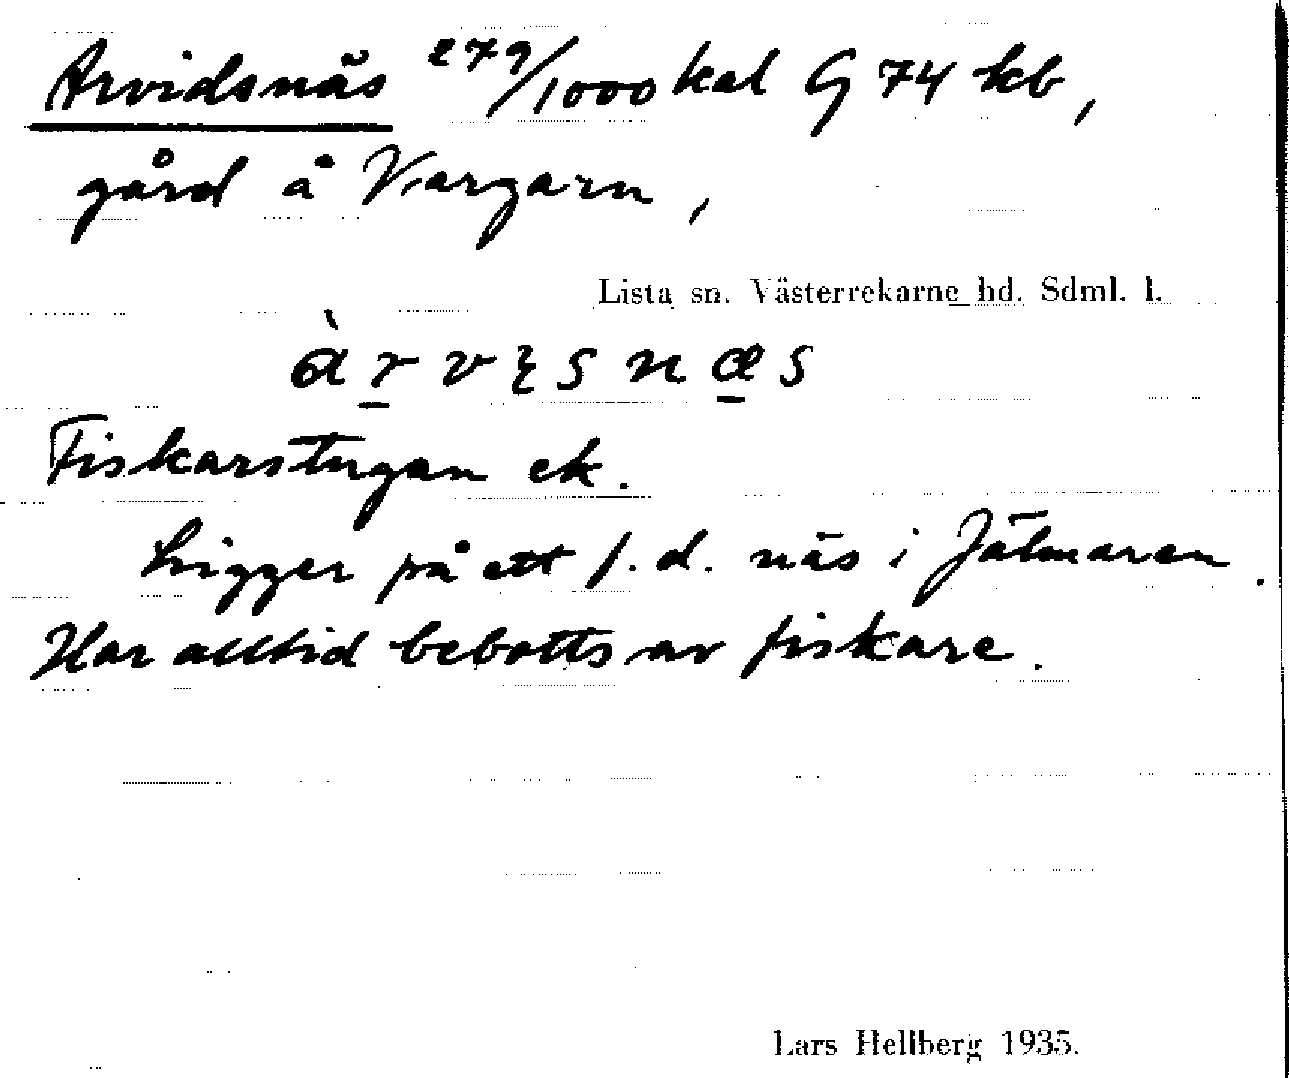 Arvidsnäs 279/1000 kal G 74 kb,
gård å Vargarn,
Lista sn. Västerrekarne hd. Sdml. l.
Fiskarstugan ek.
Ligger på ett f.d. näs i Jälmaren.
Har alltid bebotts av fiskare.
Lars Hellberg 1935.